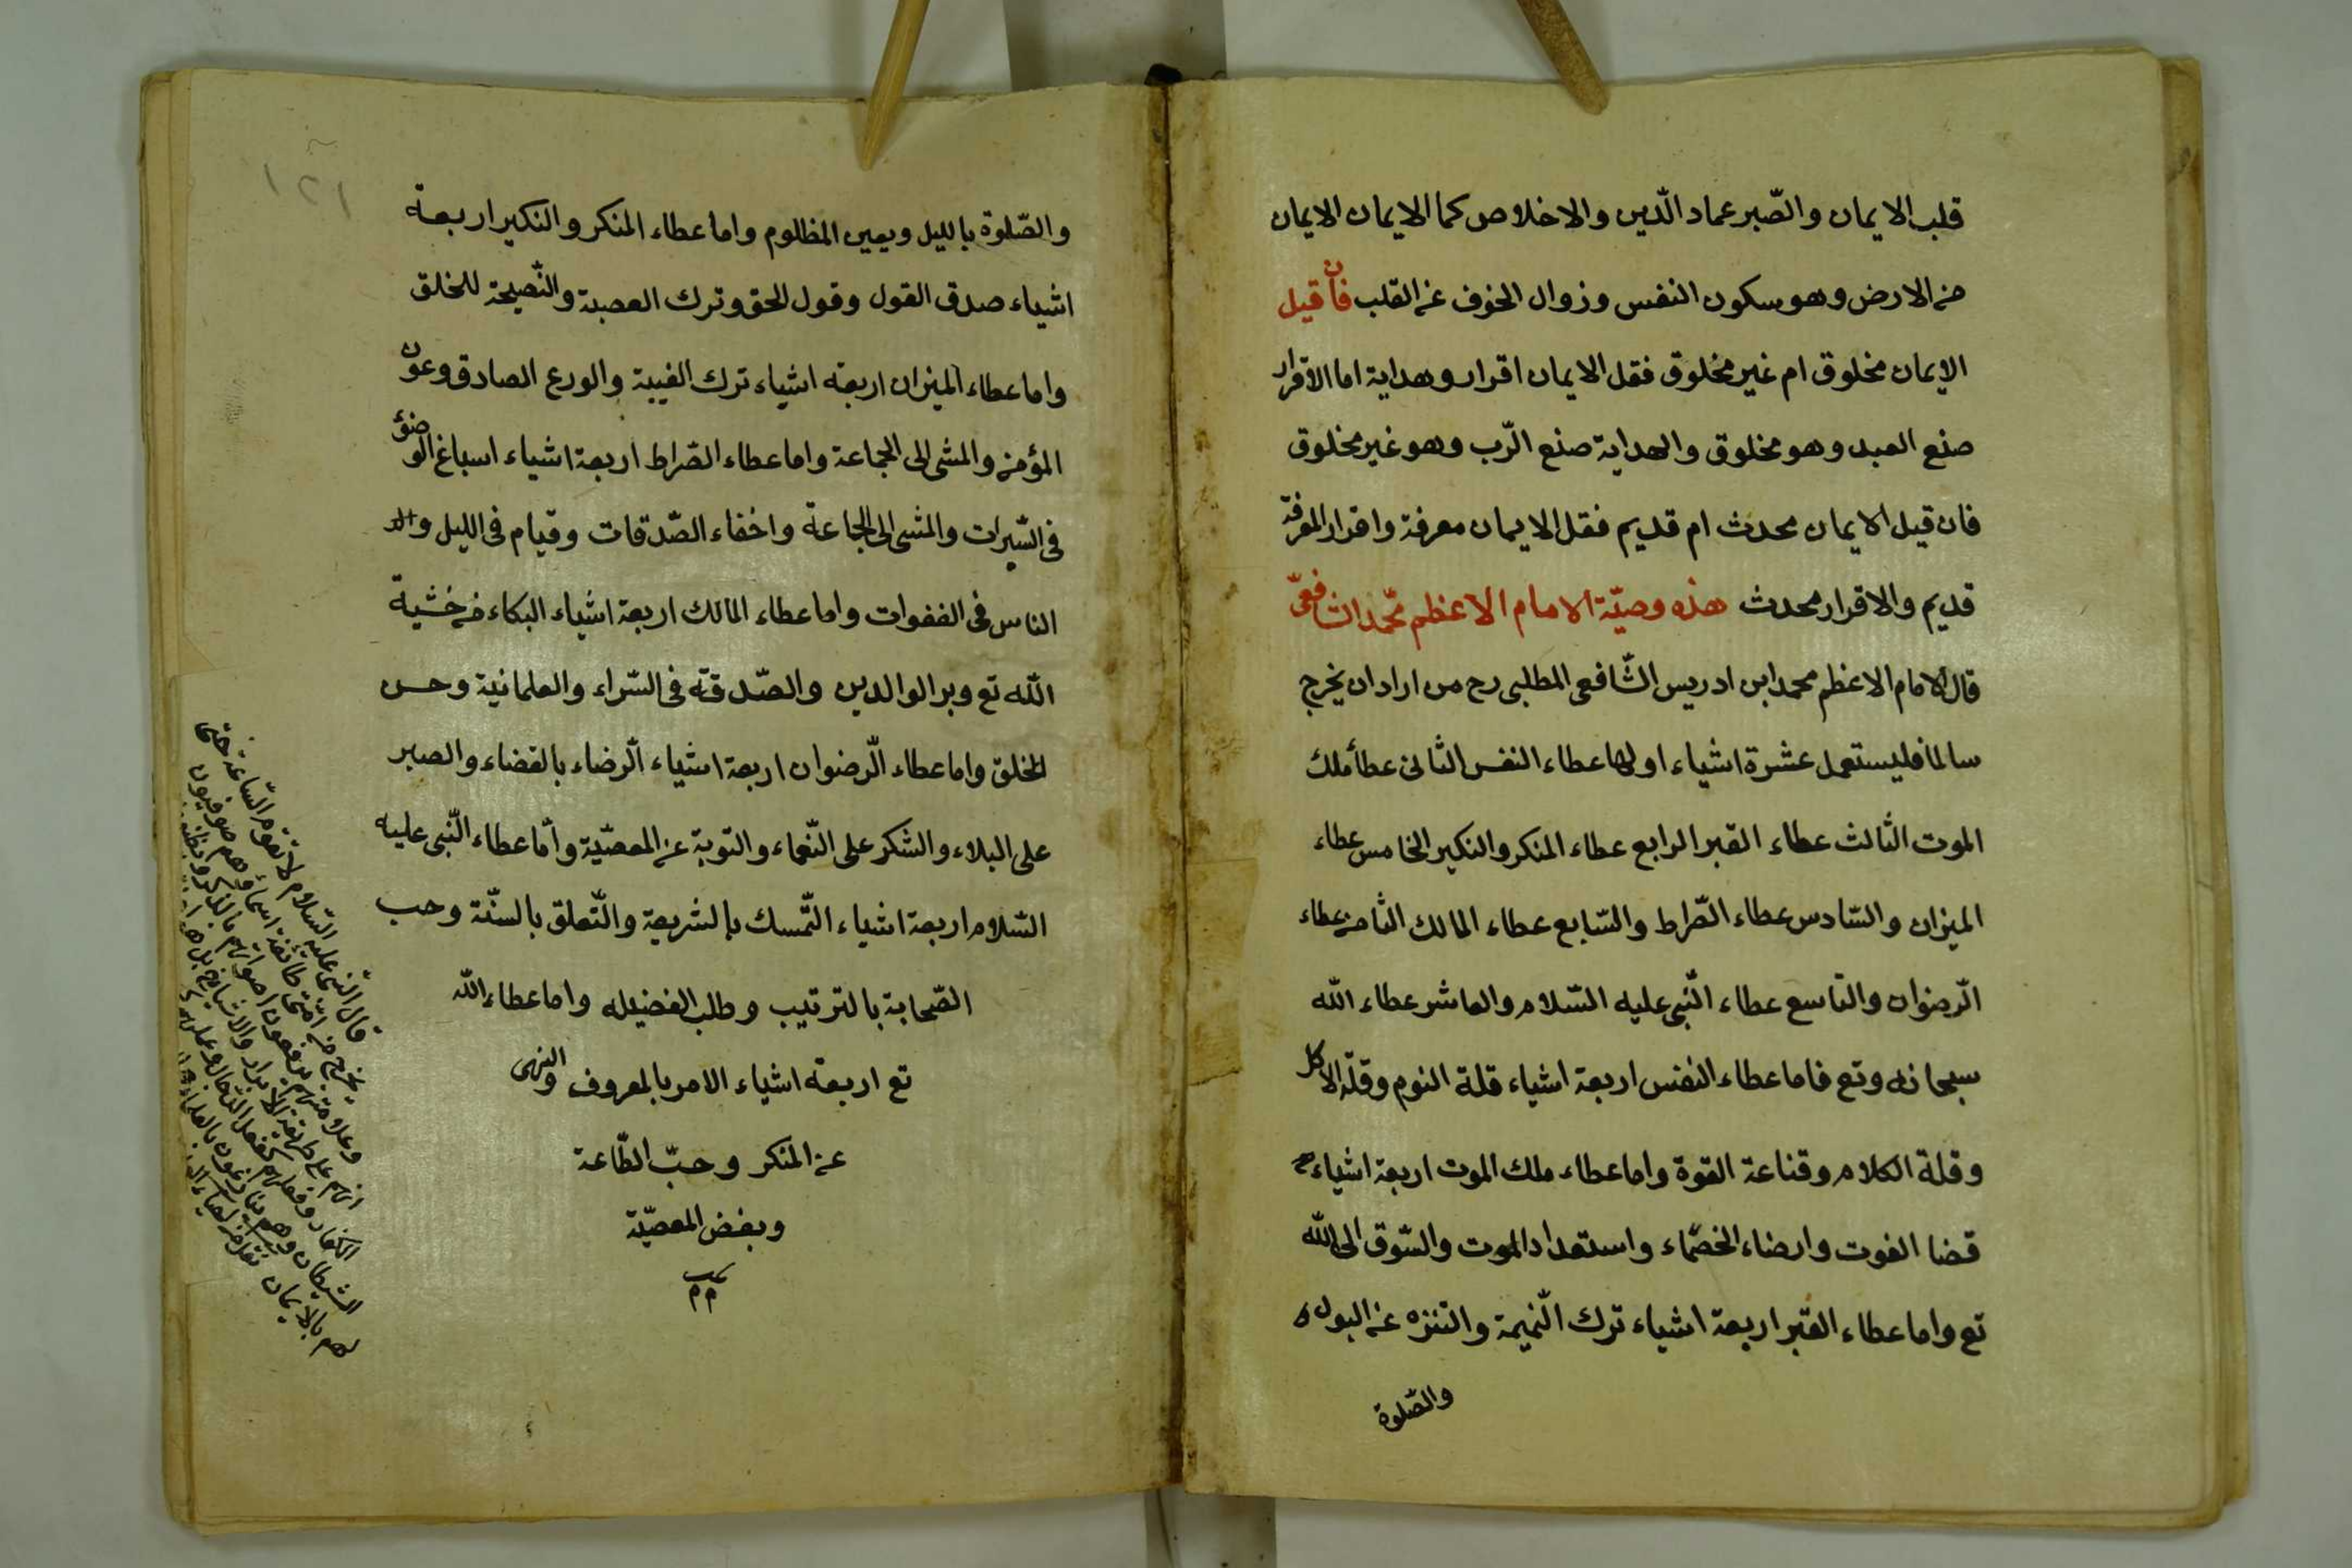 قلب الايمان والصّبر عماد الدّين والاخلاص كما الايمان الايمان
من الارض وهو سكون النفس وزوال الخوف عن القلب فأن قيل
الايمان مخلوق ام غير مخلوق فقل الايمان اقرار وهداية اما الاقرار
صنع العبد وهو مخلوق والهداية صنع الرّب وهو غير مخلوق
فان قيل الايمان محدث ام قديم فقل الايمان معرفة واقرار المعرفة
قديم والاقرار محدث هذه وصيّة الامام الاعظم محّمد الشافعىّ
قال الامام الاعظم محمد ابن ادريس الشّافعى المطلبى رح من اراد ان يخرج
سالما فليستعمل عشرة اشياء اولها عطاء النفس الثّانى عطأ ملك
الموت الثّالث عطاء القبر الرابع عطاء المنكر والنكير الخامس عطاء
الميزان والسّادس عطاء الصّراط والسّابع عطاء المالك الثامن عطاء
الرّضوان والتاسع عطاء النّبى عليه السّلام والعاشر عطاء الله
سبحانه وتع فاما عطاء النفس اربعة اشياء قلة النوم وقلّة الاكل
وقلة الكلام وقناعة القوة واما عطاء ملك الموت اربعة اشياء
قضا الفوت وارضاء الخصّماء واستعداد الموت والشّوق الى الله
تع واما عطاء القبر اربعة اشياء ترك النّميمة والتنزه عن البول
والصّلوة
١٢١
والصّلوة بالليل ويعين المظلوم واما عطاء المنكر والنكير اربعة
اشياء صدق القول وقول الحق وترك العصبة والنّصيحة للخلق
واما عطاء الميزان اربعة اشياء ترك الغيبة والورع الصادق وعون
المؤمن والمشى الى الجماعة واما عطاء الصّراط اربعة اشياء اسباغ الوضؤ
فى السّبرات والمشى الى الجماعة واخفاء الصّدقات وقيام فى الليل و
الناس فى الغفوات واما عطاء المالك اربعة اشياء البكاء من خشية
الله تع وبر الوالدين والصّدقة فى السّراء والعلمانية وحسن
الخلق واما عطاء الرّضوان اربعة اشياء الرضاء بالقضاء والصبر
على البلاء والشكر على النّعماء والتّوبة عن المعصّية وأمّا عطاء النّبى عليه
السّلام اربعة اشياء التّمسك بالشريعة والتّعلق بالسنّة وحب
الصّحابة بالترتيب وطلب الفضيله واما عطاء الله
تع اربعة اشياء الامر بالمعروف والنهى
عن المنكر وحبّ الطّاعة
وبغض المعصّية
قال النّبى عليه السّلام لا تقوم السّاعة حتى
يخرج من امّتى طائفة اسماؤهم صوفيون
وعلامتهم يرفعون اصواتهم بالذكر
انهم على طريقة الابرار
الكفار
الشيطان وهم ينازعون بالعلماء
لهم بالايمان